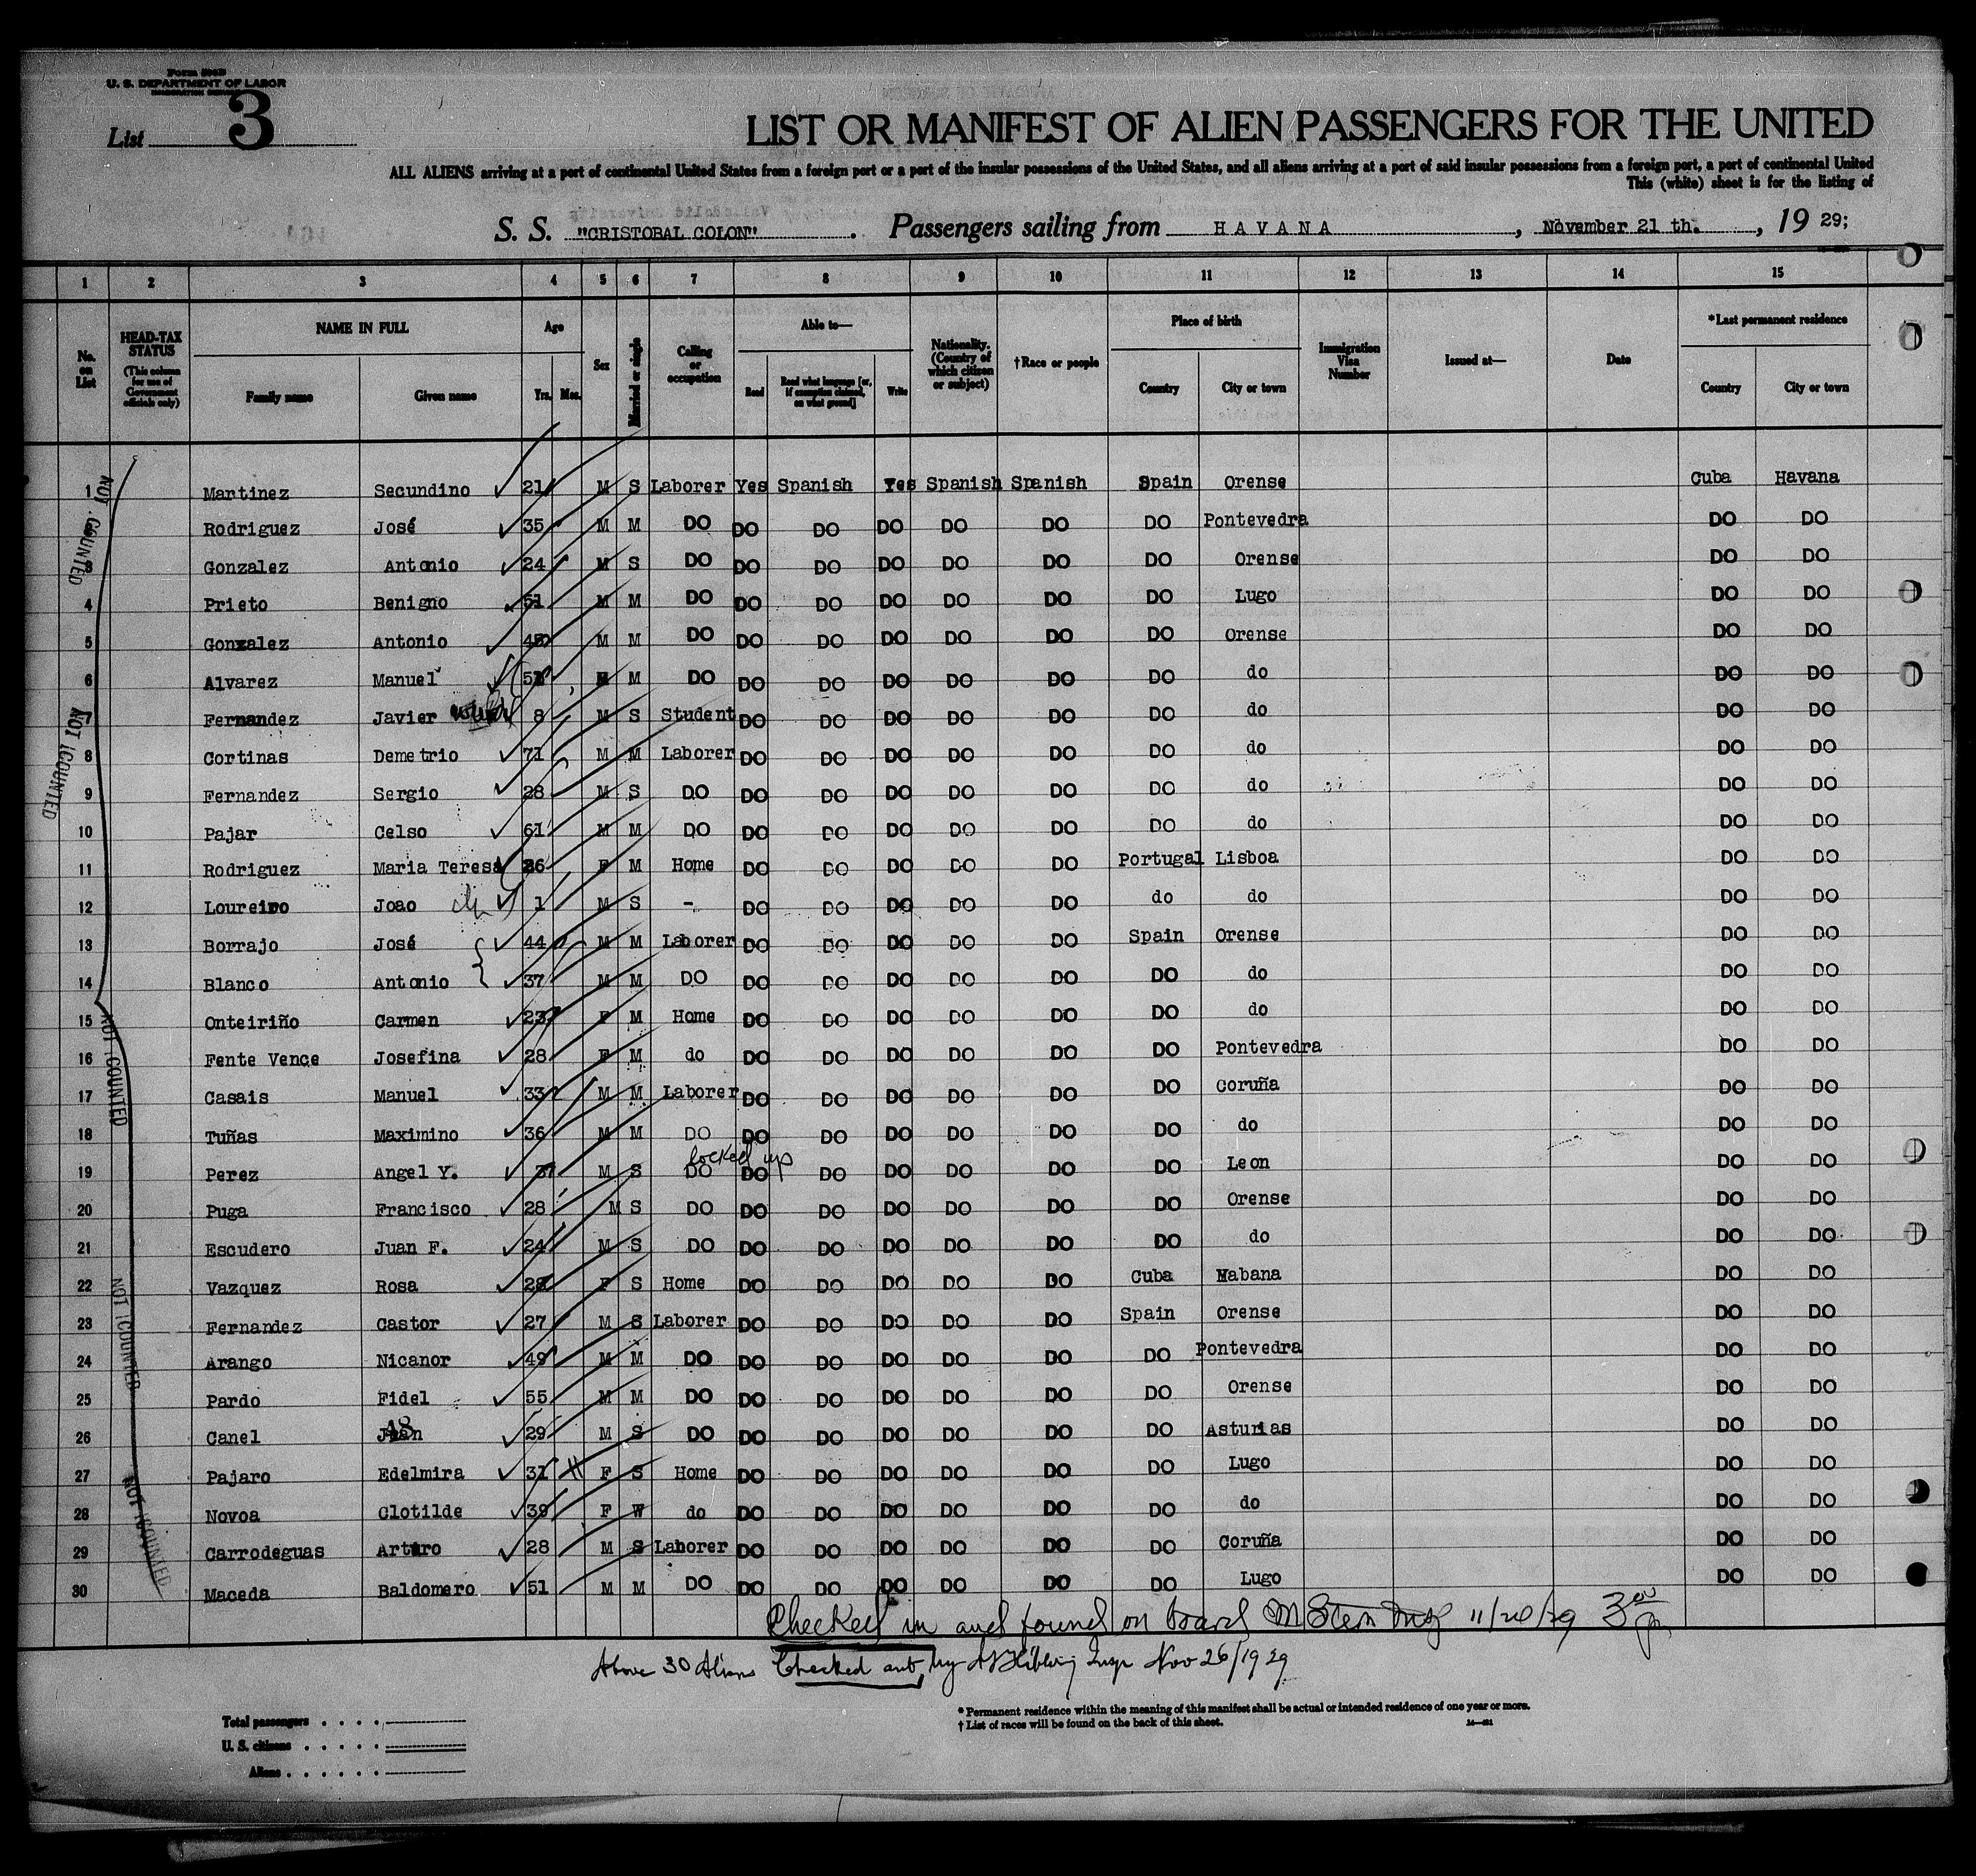 Form 500B
U. S. DEPARTMENT OF LABOR
IMMIGRATION SERVICE
List 3
LIST OR MANIFEST OF ALIEN PASSENGERS FOR THE UNITED
ALL ALIENS arriving at a port of continental United States from a foreign port or a port of the insular possessions of the United States, and all aliens arriving at a port of said insular possessions from a foreign port, a port of continental United
This (white) sheet is for the listing of
S. S. "CRISTOBAL COLON" . Passengers sailing from HAVANA , November 21 th. , 19 29;
1 2 3 4 5 6 7 8 9 10 11 12 13 14 15
No. on List
HEAD-TAX STATUS (This column for use of Government officials only)
NAME IN FULL Family name Given name
Age Yrs. Mos.
Sex
Married or single
Calling or occupation
Able to— Read Read what language [or, if exemption claimed, on what ground] Write
Nationality. (Country of which citizen or subject)
†Race or people
Place of birth Country City or town
Immigration Visa Number
Issued at—
Date
*Last permanent residence Country City or town
1 Martinez Secundino 21 M S Laborer Yes Spanish Yes Spanish Spanish Spain Orense Cuba Havana
Rodriguez José 35 M M DO DO DO DO DO DO DO Pontevedra DO DO
3 Gonzalez Antonio 24 M S DO DO DO DO DO DO DO Orense DO DO
4 Prieto Benigno 51 M M DO DO DO DO DO DO DO Lugo DO DO
5 Gonzalez Antonio M M DO DO DO DO DO DO DO Orense DO DO
6 Alvarez Manuel M M DO DO DO DO DO DO DO do DO DO
7 Fernandez Javier 8 M S Student DO DO DO DO DO DO do DO DO
8 Cortinas Demetrio 71 M M Laborer DO DO DO DO DO DO do DO DO
9 Fernandez Sergio 28 M S DO DO DO DO DO DO DO do DO DO
10 Pajar Celso 61 M M DO DO DO DO DO DO DO do DO DO
11 Rodriguez Maria Teresa 26 F M Home DO DO DO DO DO Portugal Lisboa DO DO
12 Loureiro Joao 1 M S - DO DO DO DO DO do do DO DO
13 Borrajo José 44 M M Laborer DO DO DO DO DO Spain Orense DO DO
14 Blanco Antonio 37 M M DO DO DO DO DO DO DO do DO DO
15 Onteiriño Carmen 23 F M Home DO DO DO DO DO DO do DO DO
16 Fente Vence Josefina 28 F M do DO DO DO DO DO DO Pontevedra DO DO
17 Casais Manuel 33 M M Laborer DO DO DO DO DO DO Coruña DO DO
18 Tuñas Maximino 36 M M DO DO DO DO DO DO DO do DO DO
locked up
19 Perez Angel Y. 37 M S DO DO DO DO DO DO DO Leon DO DO
20 Puga Francisco 28 M S DO DO DO DO DO DO DO Orense DO DO
21 Escudero Juan F. 24 M S DO DO DO DO DO DO DO do DO DO
22 Vazquez Rosa 28 F S Home DO DO DO DO DO Cuba Habana DO DO
23 Fernandez Castor 27 M S Laborer DO DO DO DO DO Spain Orense DO DO
24 Arango Nicanor 49 M M DO DO DO DO DO DO DO Pontevedra DO DO
25 Pardo Fidel 55 M M DO DO DO DO DO DO DO Orense DO DO
26 Canel Juan 29 M S DO DO DO DO DO DO DO Asturias DO DO
27 Pajaro Edelmira 31 F S Home DO DO DO DO DO DO Lugo DO DO
28 Novoa Clotilde 39 F W do DO DO DO DO DO DO do DO DO
29 Carrodeguas Arturo 28 M S Laborer DO DO DO DO DO DO Coruña DO DO
30 Maceda Baldomero 51 M M DO DO DO DO DO DO DO Lugo DO DO
NOT COUNTED
NOT COUNTED
NOT COUNTED
NOT COUNTED
NOT COUNTED
Checked in and found on board M Stern Insp 3 00 p
Above 30 Aliens Checked out, by Insp Nov 26/1929
* Permanent residence within the meaning of this manifest shall be actual or intended residence of one year or more.
† List of races will be found on the back of this sheet.
Total passengers . . . .
U. S. citizens . . . . .
Aliens . . . . . .